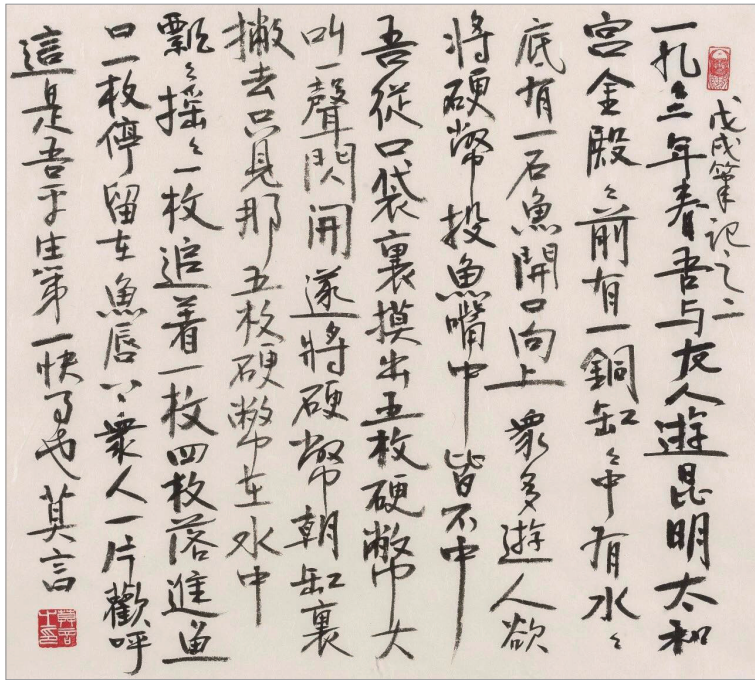 戊戌筆記之二
一九九三年春吾与友人遊昆明太和
宮金殿〻前有一銅缸〻中有水〻
底有一石魚開口向上衆多遊人欲
將硬幣投魚嘴中皆不中
吾從口袋裏摸出五枚硬幣大
叫一聲閃開遂將硬幣朝缸裏
撇去只見那五枚硬幣在水中
飄〻搖〻一枚追着一枚四枚落進魚
口一枚停留在魚唇上衆人一片歡呼
這是吾平生第一快事也 莫言